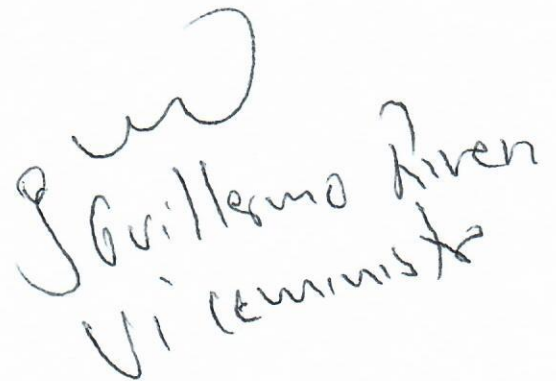 J Guillermo Rivera
Viceministro